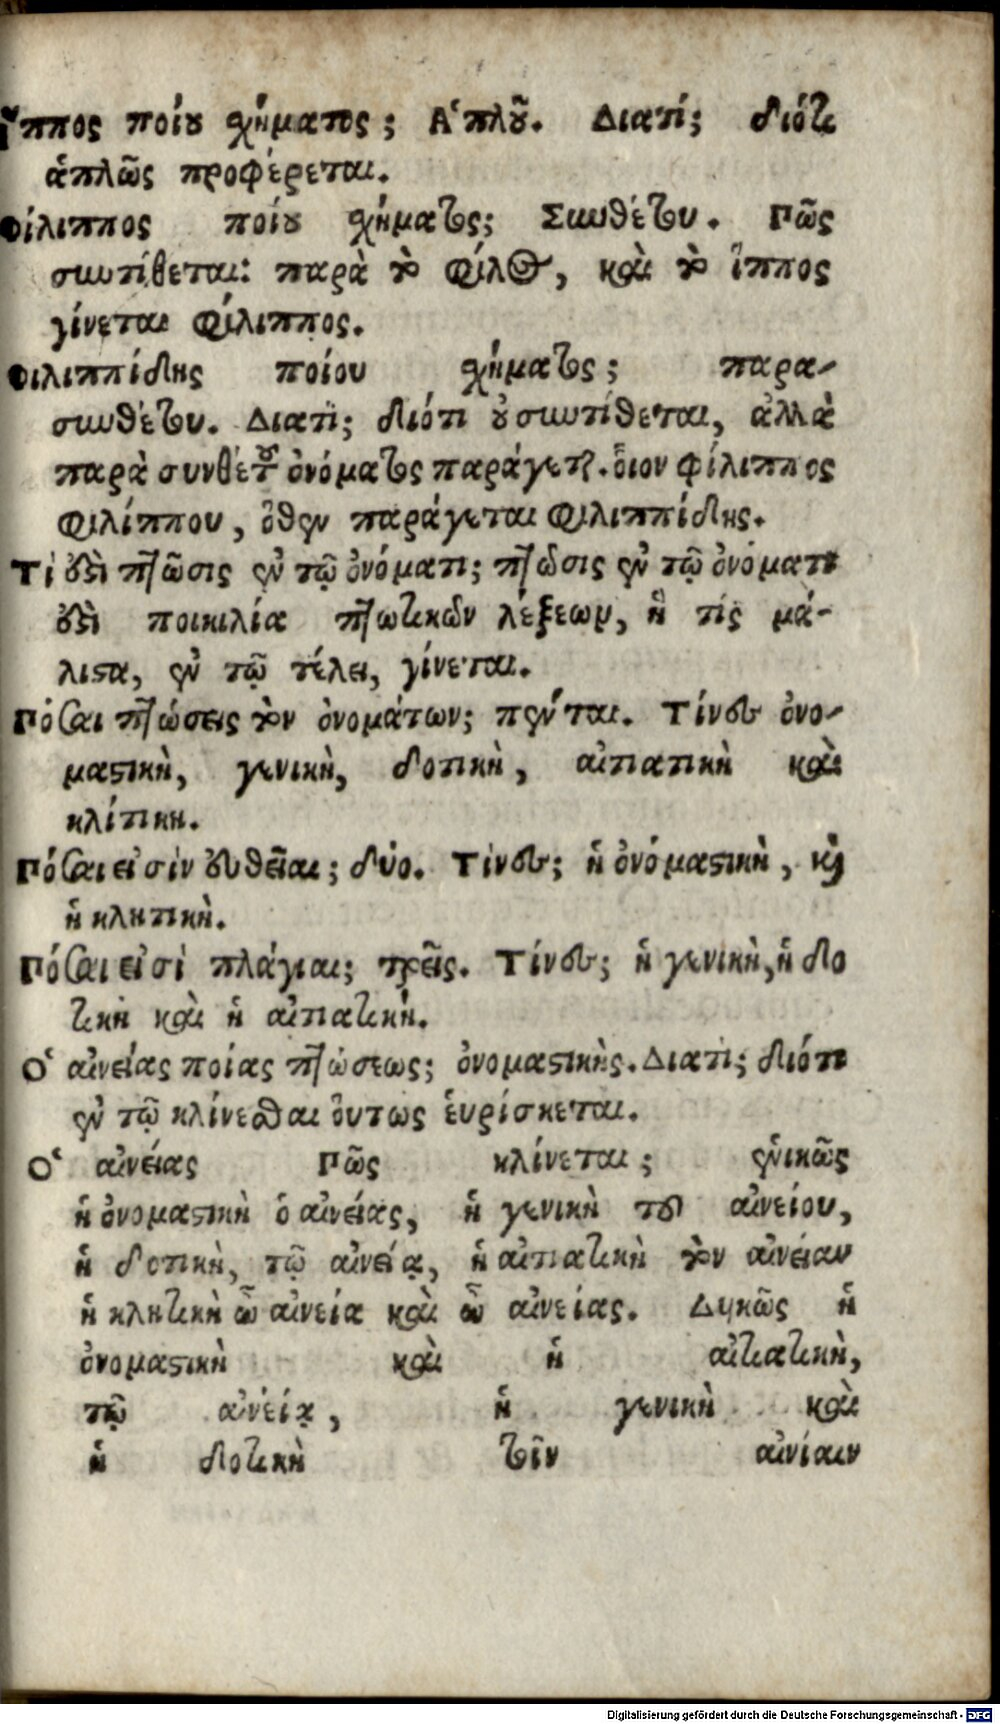 ἵππος ποίου σχήματος; Ἁπλοῦ. Διατί; διότι
ἁπλῶς προφέρεται.
Φίλιππος ποίου σχήματος; Συνθέτου. Πῶς
συντίθεται: παρὰ τὸ φίλος, καὶ τὸ ἵππος
γίνεται Φίλιππος.
Φιλιππίδης ποίου σχήματος; παρα-
συνθέτου. Διατὶ; διότι οὐ συντίθεται, ἀλλὰ
παρὰ συνθέτου ὀνόματος παράγεται. οἷον Φίλιππος
Φιλίππου, ὅθεν παράγεται Φιλιππίδης.
Τί ἐστὶ πτῶσις ἐν τῷ ὀνόματι; πτῶσις ἐν τῷ ὀνόματι
ἐστὶ ποικιλία πτωτικῶν λέξεων, ἥ τίς μά-
λιστα, ἐν τῷ τέλει, γίνεται.
Πόσαι πτώσεις τῶν ὀνομάτων; πέντε. Τίνες ὀνο-
μαστικὴ, γενικὴ, δοτικὴ, αἰτιατικὴ καὶ
κλίτικη.
Πόσαι εἰσὶν εὐθεῖαι; δύο. Τίνες; ἡ ὀνόμαστικὴ, καὶ
ἡ κλητικὴ.
Πόσαι εἰσὶ πλάγιαι; τρεῖς. Τίνες; ἡ γενικὴ, ἡ δο
τικὴ καὶ ἡ αἰτιατική.
Ὁ αἰνείας ποίας πτώσεως; ὀνομαστικῆς. Διατὶ; διότι
ἐν τῷ κλίνεσθαι οὕτως ἑυρίσκεται.
Ὁ αἰνείας Πῶς κλίνεται; ἑνικῶς
ἡ ὀνομαστικὴ ὁ αἰνείας, ἡ γενικὴ τοῦ αἰνείου,
ἡ δοτικὴ, τῷ αἰνείᾳ, ἡ αἰτιατικὴ τὸν αἰνείαν
ἡ κλητικὴ ὦ αἰνεία καὶ ὦ αἰνείας. Δυικῶς ἡ
ὀνομαστικὴ καὶ ἡ αἰτιατικὴ,
τῷ αἰνείᾳ, ἡ γενικὴ καὶ
ἡ δοτικὴ τοῖν αἰνίαιν
Digitalisierung gefördert durch die Deutsche Forschungsgemeinschaft - DFG